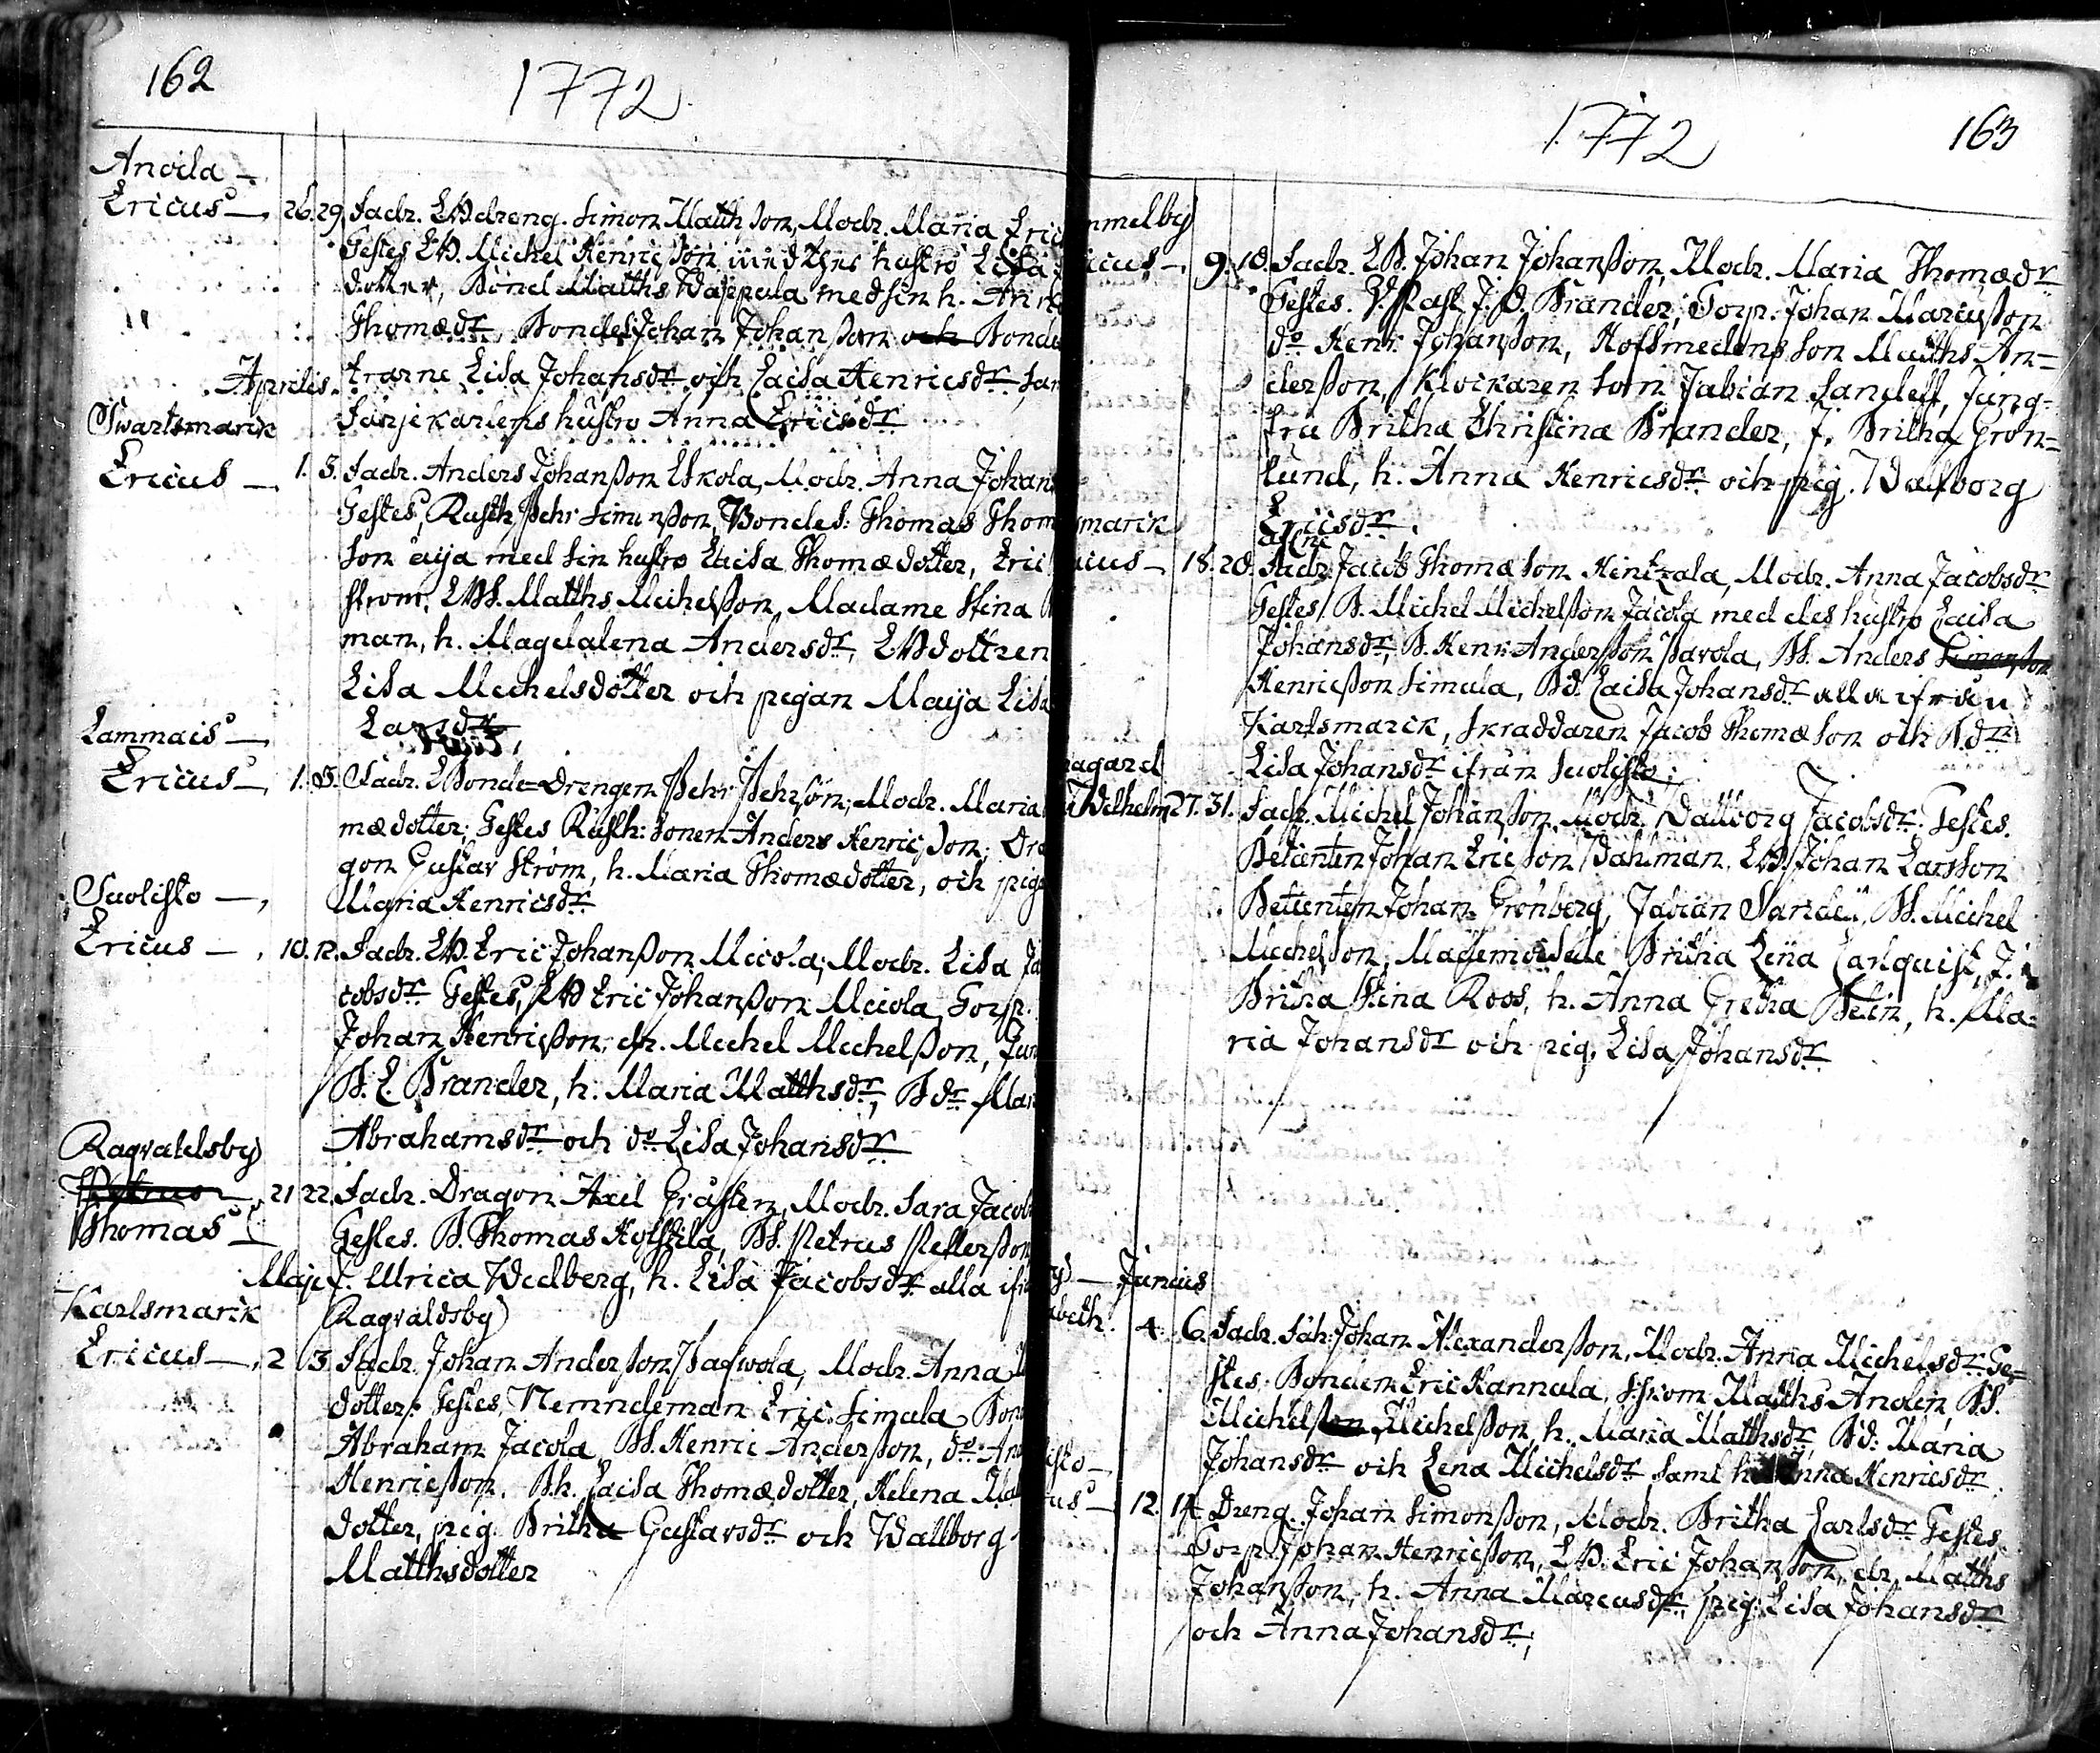 162
1772
Anoila —
Ericus —, 26. 29. Fadr. LBdreng. Simon Matthson, Modr. Maria Eric
Testes LB. Michel Henricson med thes hustro Lisa
dotter, Bond Matths Wäppula med sin h. Ann
Thomædr. Bondes. Johan Johanßon och Bonde
Aprilis. trarne Lisa Johansdr och Caisa Henricsdr
Swartsmarck Färjekarlens hustro Anna Ericsdr
Ericus — 1. 3. Fadr. Anders Johanßon Uskola, Modr. Anna Johans
Testes, Rusth. Pehr Simonßon, Bondes: Thomas Thom
son äija med sin hustro Caisa Thomædotter, Eric
ström, LBS. Matths Michelßon, Madame Stina
man, h. Magdalena Andersdr, LBdottren
Lisa Michelsdotter och pigan Maija Lisa
Larsdr
Lammais —
Ericus — 1. 3. Fadr. LBonde-Drengen Pehr Pehrson; Modr. Maria
mædotter; Testes Rusth: Sonen Anders Henricson; Dra
gon Gustav Ström, h. Maria Thomædotter, och pig
Maria Henricsdr
Suolisto —,
Ericus — , 10. 12. Fadr. LB. Eric Johanßon Micola; Modr. Lisa Ja
cobsdr Testes, LB Eric Johanßon Micola, Torp.
Johan Henricßon, dr. Michel Michelßon, Jun
B. E. Brander, h: Maria Matthsdr, Bdr Mar
Abrahamsdr och do Lisa Johansdr
Ragvaldsby
Petrus 21 22. Fadr. Dragon Axel Gråsten, Modr. Sara Jacob
Thomas — Testes. B. Thomas Hollstila, BS. Petrus Petterßon
Maji J. Ulrica Wedberg, h. Lisa Jacobsdr alla ifrå
Karlsmarck Ragvaldsby
Ericus —, 2 3. Fadr. Johan Anderßon Pawola, Modr. Anna
dotter: Testes, Nemndeman Eric Simula Bon
Abraham Jacola, BS. Henric Anderßon, do An
Henricßon, Bh. Caisa Thomædotter, Helena Ma
dotter, pig. Britha Gustavsdr och Wallborg
Matthsdotter
1772
163
mmelby
icus — 9. 10. Fadr. LB. Johan Johanßon, Modr. Maria Thomædr
Testes. V. Past. J. O. Brander, Torp. Johan Marcußon
do Henr. Johanßon, Hofsmedens Son Matths An=
derßon, Klockaren Son Fabian Sandell, Jung=
fru Britha Christina Brander, J. Britha Grön=
lund, h. Anna Henricsdr och pig. Walborg
Ericsdr.
smarck
icus — 18. 20. Fadr. Jacob Thomæson Hentzala, Modr. Anna Jacobsdr
Testes, B. Michel Michelßon Jacola med des hustro Caisa
Johansdr, B. Henr. Anderßon Pavola, BS. Anders Simonßon
Henricßon Simula, Bd. Caisa Johansdr alla ifrån
Karlsmarck, Skraddaren Jacob Thomæson och Bdr
Lisa Johansdr ifrån Suolisto;
agard
Wilhelm 27. 31. Fadr. Michel Johanßon, Modr. Wallborg Jacobsdr. Testes.
Betienten Johan Ericson Wahlman, LB. Johan Larsson
Betienten Johan Grönberg, Fabian Sandell, BS. Michel
Michelsson; Mademoiselle Britha Lena Carlquist, J.
Britha Stina Roos, h. Anna Gretha Belin, h. Ma=
ria Johansdr och pig. Lisa Johansdr
— Junius
abeth. 4. 6. Fadr. Johan Alexanderßon, Modr. Anna Michelsdr Te=
stes. Bonden Eric Kannula, Matths Andlin, BS.
Michelßon Michelßon, h. Maria Matthsdr, Bd: Maria
Johansdr och Lena Michelsdr samt h. Anna Henricsdr.
isto —
us — 12. 14. Dreng. Johan Simonßon, Modr. Britha Carlsdr Testes.
Torp. Johan Henricßon, LB. Eric Johanßon, dr. Matths
Johanßon, h. Anna Marcusdr, pig: Lisa Johansdr
och Anna Johansdr;